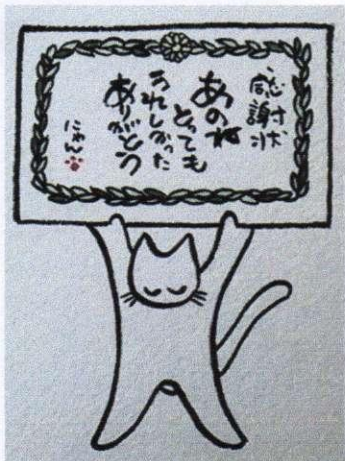 感謝状
あのね
とっても
うれしかった
ありがとう
にゃん